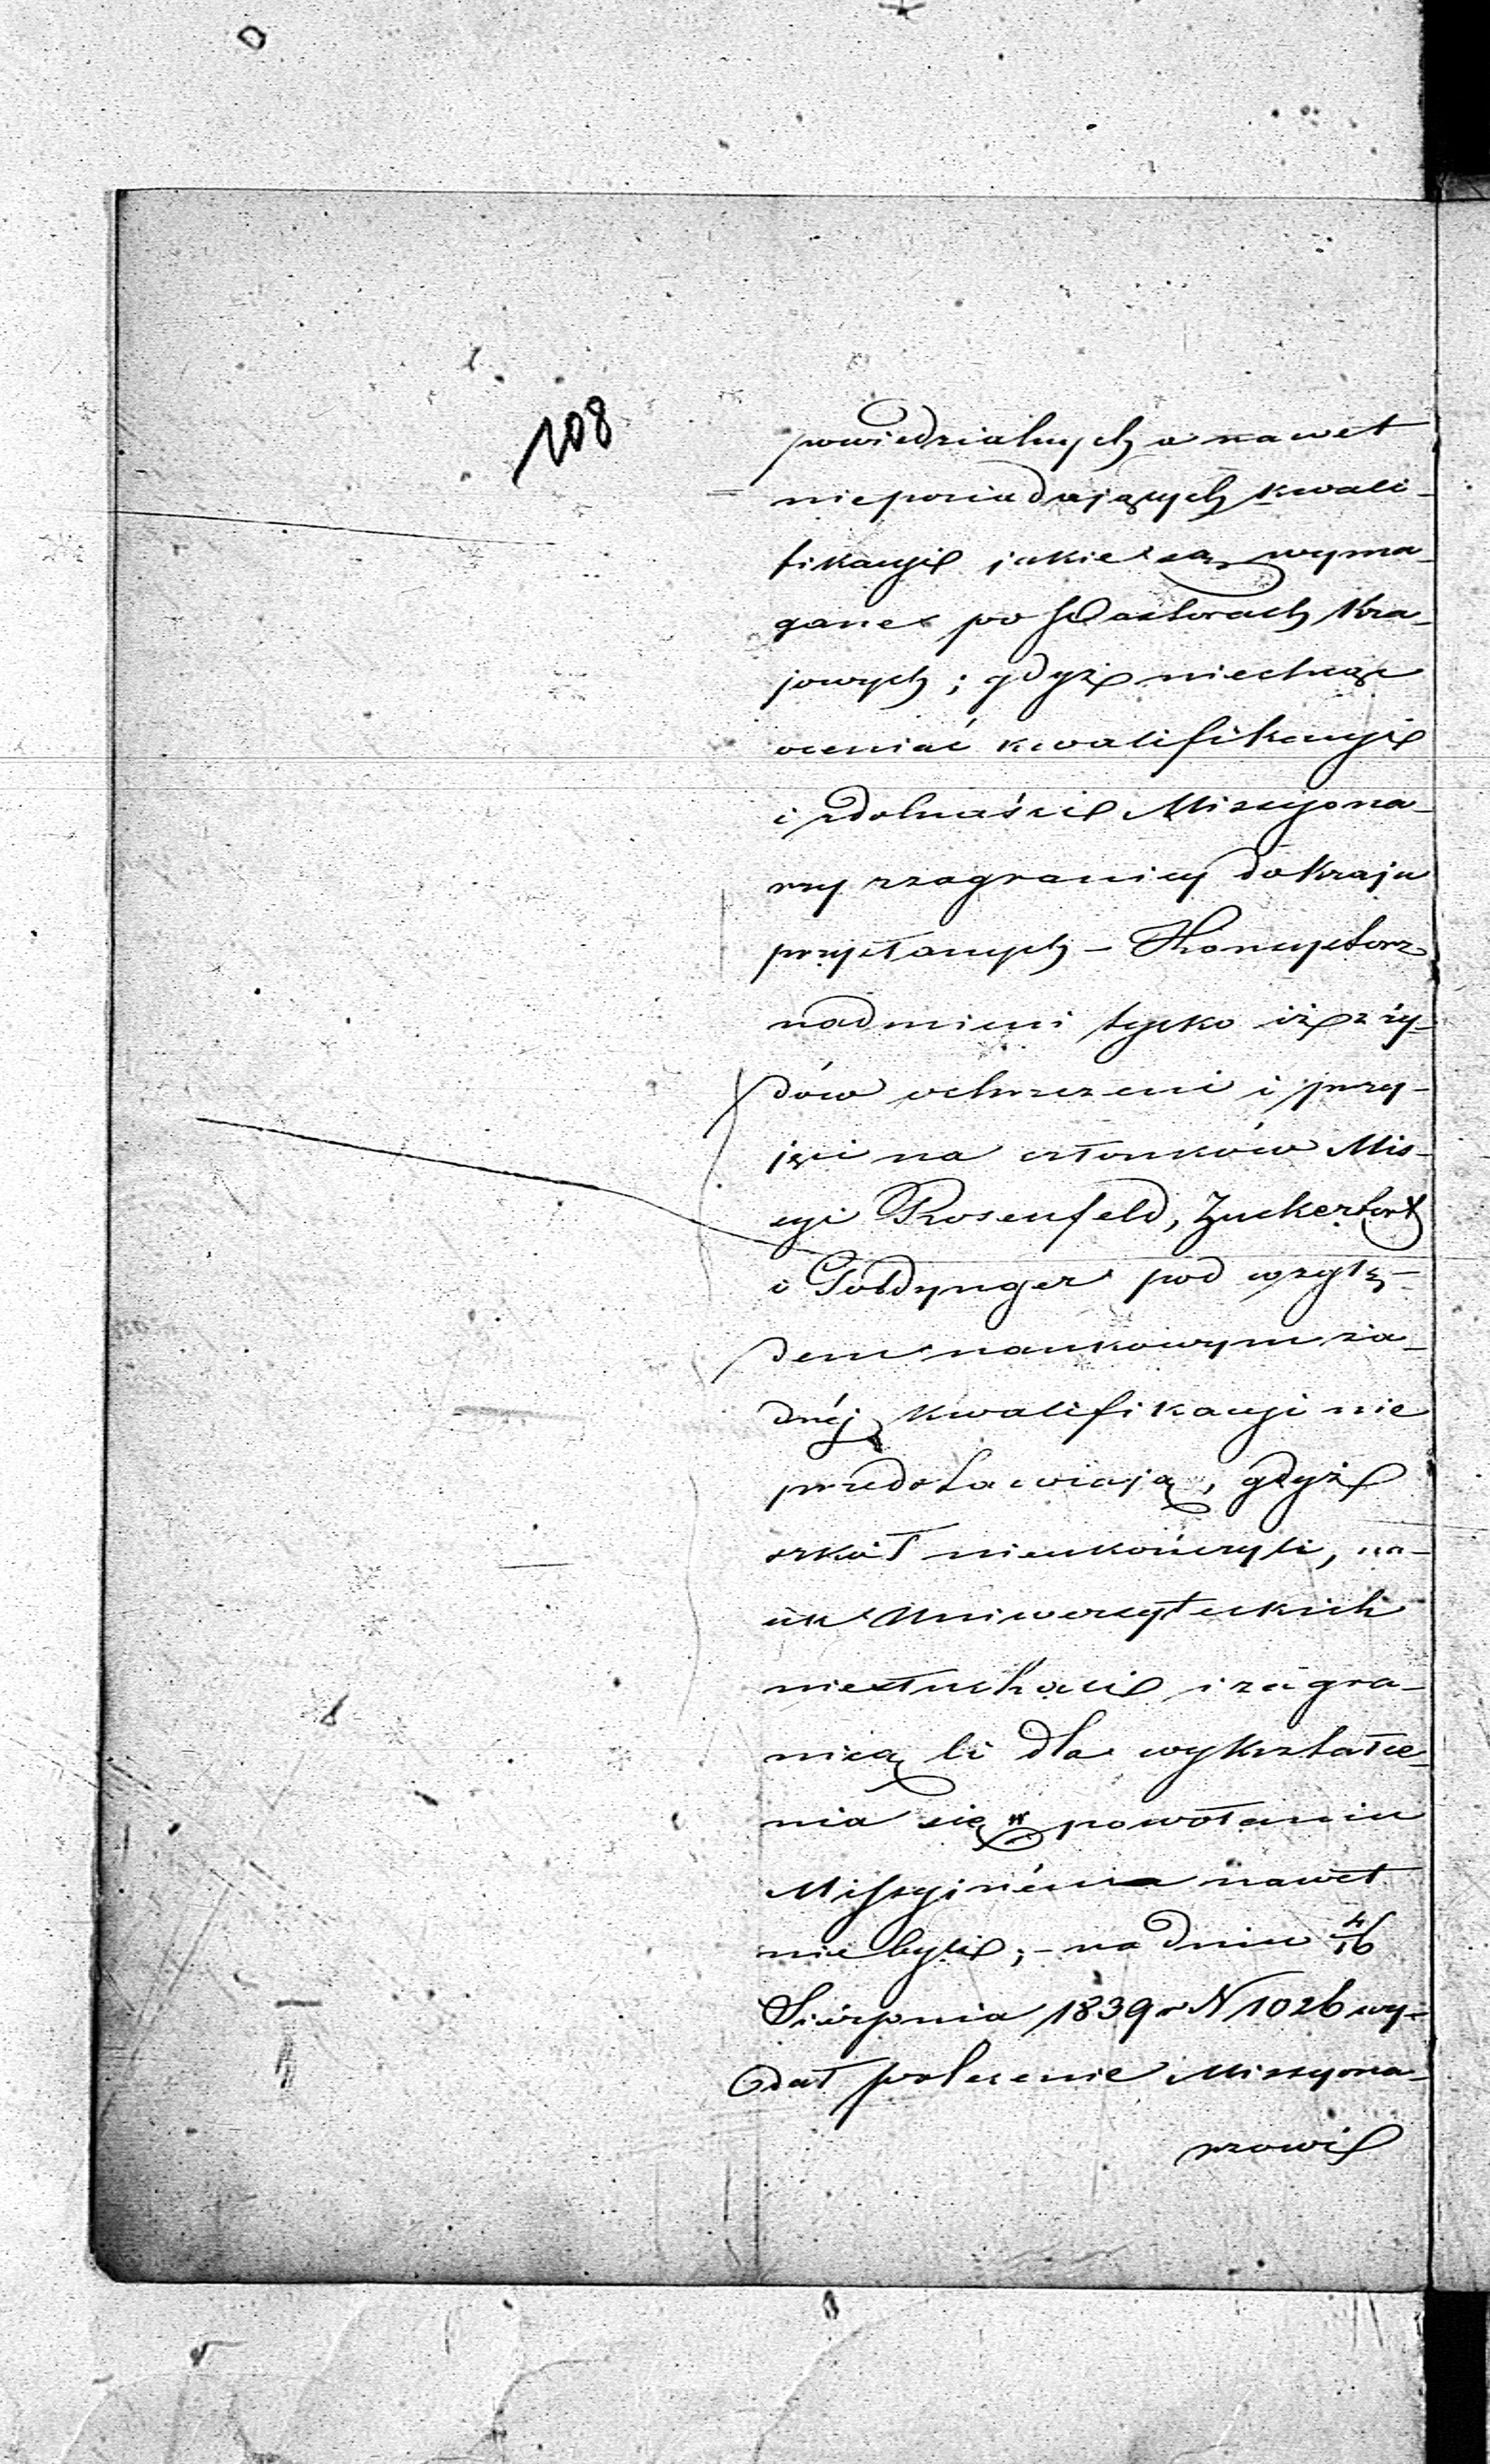 108
powiedzialnych a nawet
nieposiadających kwali-
fikacyi jakie są wyma-
gane po Pastorach Kra-
jowych; gdyż niechcąc
oceniać kwalifikacyi
i zdolności Missyona-
rzy zzagranicy do Kraju
przysłanych – Konsystorz
nadmieni tylko iż z ży-
dów ochrzczeni i przy-
jęci na członków Mis-
syi Rosenfeld, Zuckertort
i Goldynger pod wzglę-
dem naukowym ża-
dnéj kwalifikacyi nie
przedstawiają, gdyż
szkół nieukończyli, na-
uk Uniwersyteckich
niesłuchali i zagra-
nicą li dla wykształce-
nia się w powołaniu
Missyjném nawet
nie byli; – na dniu 4/16
Sierpnia 1839 r N 1026 wy-
dał polecenie Missyona-
rzowi